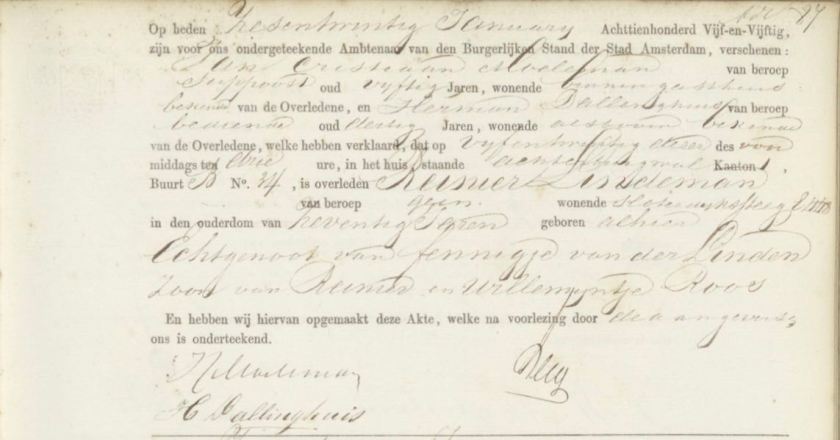 87
Op heden Zesentwintig January Achttienhonderd Vijf-en-Vijftig,
zijn voor ons ondergeteekende Ambtenaar van den Burgerlijken Stand der Stad Amsterdam, verschenen:
Jan Cristiaan Modeman van beroep
Suppoost oud vyftig Jaren, wonende binnengasthuis
bekende van de Overledene, en Herman Dallinghuis van beroep
bediende oud dertig Jaren, wonende als voren bekende
van de Overledene, welke hebben verklaard, dat op vyfentwintig dezer des voor
middags ten drie ure, in het huis, staande achterburgwal Kanton 1,
Buurt B No. 34, is overleden Reinier Lindeman
van beroep geen wonende
in den ouderdom van zeventig Jaren geboren alhier
Echtgenoot van Jennigje van der Linden
zoon van Reinier en Willemyntje Roos
En hebben wij hiervan opgemaakt deze Akte, welke na voorlezing door de aangevers,
ons is onderteekend.
Modeman
H Dallinghuis